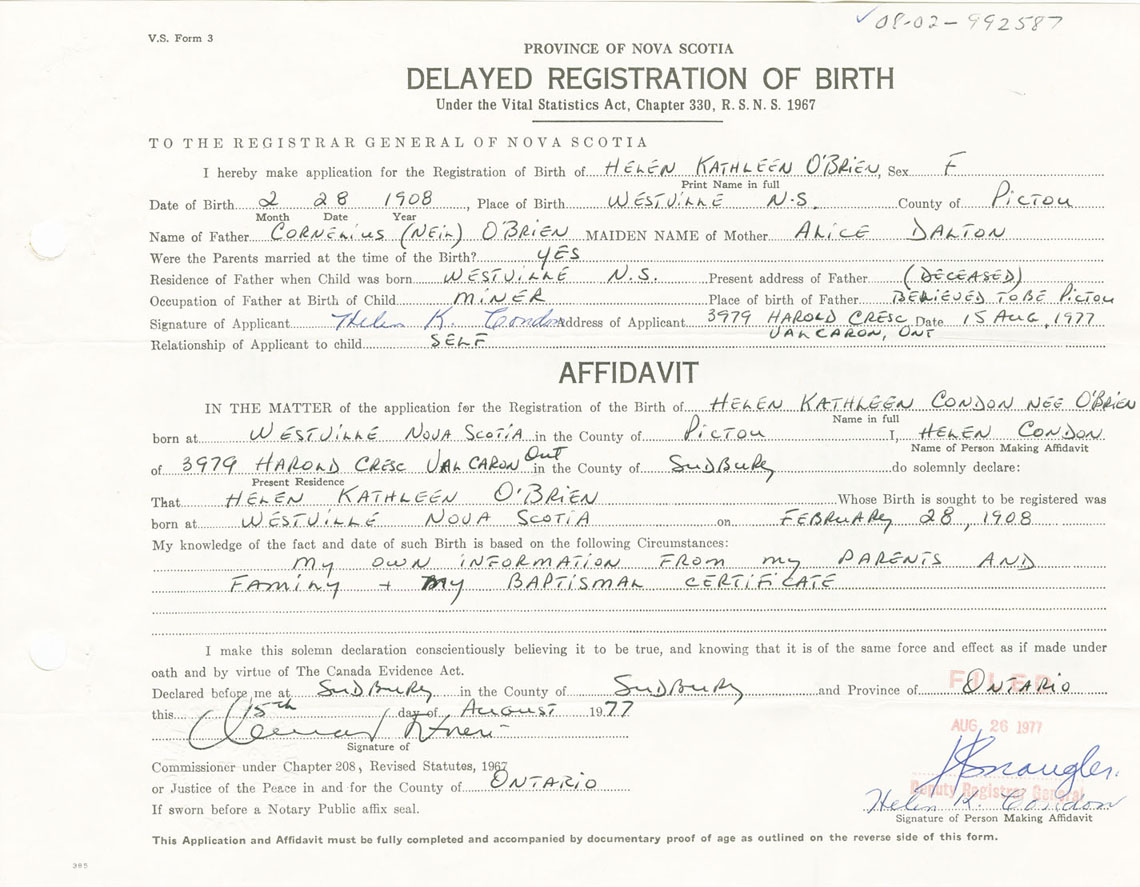 ✓ 08-02-992587
V.S. Form 3
PROVINCE OF NOVA SCOTIA
DELAYED REGISTRATION OF BIRTH
Under the Vital Statistics Act, Chapter 330, R.S.N.S. 1967
TO THE REGISTRAR GENERAL OF NOVA SCOTIA
I hereby make application for the Registration of Birth of HELEN KATHLEEN O'BRIEN, Sex F
Print Name in full
Date of Birth 2 28 1908, Place of Birth WESTVILLE N.S. County of PICTOU
Month Date Year
Name of Father CORNELIUS (NEIL) O'BRIEN MAIDEN NAME of Mother ALICE DALTON
Were the Parents married at the time of the Birth? YES
Residence of Father when Child was born WESTVILLE N.S. Present address of Father (DECEASED)
Occupation of Father at Birth of Child MINER Place of birth of Father BELIEVED TO BE PICTOU
Signature of Applicant Helen K. Condon Address of Applicant 3979 HAROLD CRESC Date 15 AUG, 1977
VAL CARON, ONT
Relationship of Applicant to child SELF
AFFIDAVIT
IN THE MATTER of the application for the Registration of the Birth of HELEN KATHLEEN CONDON NEE O'BRIEN
Name in full
born at WESTVILLE NOVA SCOTIA in the County of PICTOU I, HELEN CONDON
Name of Person Making Affidavit
of 3979 HAROLD CRESC VAL CARON Ont in the County of SUDBURY do solemnly declare:
Present Residence
That HELEN KATHLEEN O'BRIEN Whose Birth is sought to be registered was
born at WESTVILLE NOVA SCOTIA on FEBRUARY 28, 1908
My knowledge of the fact and date of such Birth is based on the following Circumstances:
MY OWN INFORMATION FROM MY PARENTS AND
FAMILY + MY BAPTISMAL CERTIFICATE
I make this solemn declaration conscientiously believing it to be true, and knowing that it is of the same force and effect as if made under
oath and by virtue of The Canada Evidence Act.
Declared before me at SUDBURY in the County of SUDBURY and Province of ONTARIO
FILED
this 15th day of AUGUST 1977
AUG 26 1977
Signature of
Commissioner under Chapter 208, Revised Statutes, 1967
or Justice of the Peace in and for the County of ONTARIO
Deputy Registrar General
If sworn before a Notary Public affix seal.
Helen K. Condon
Signature of Person Making Affidavit
This Application and Affidavit must be fully completed and accompanied by documentary proof of age as outlined on the reverse side of this form.
385